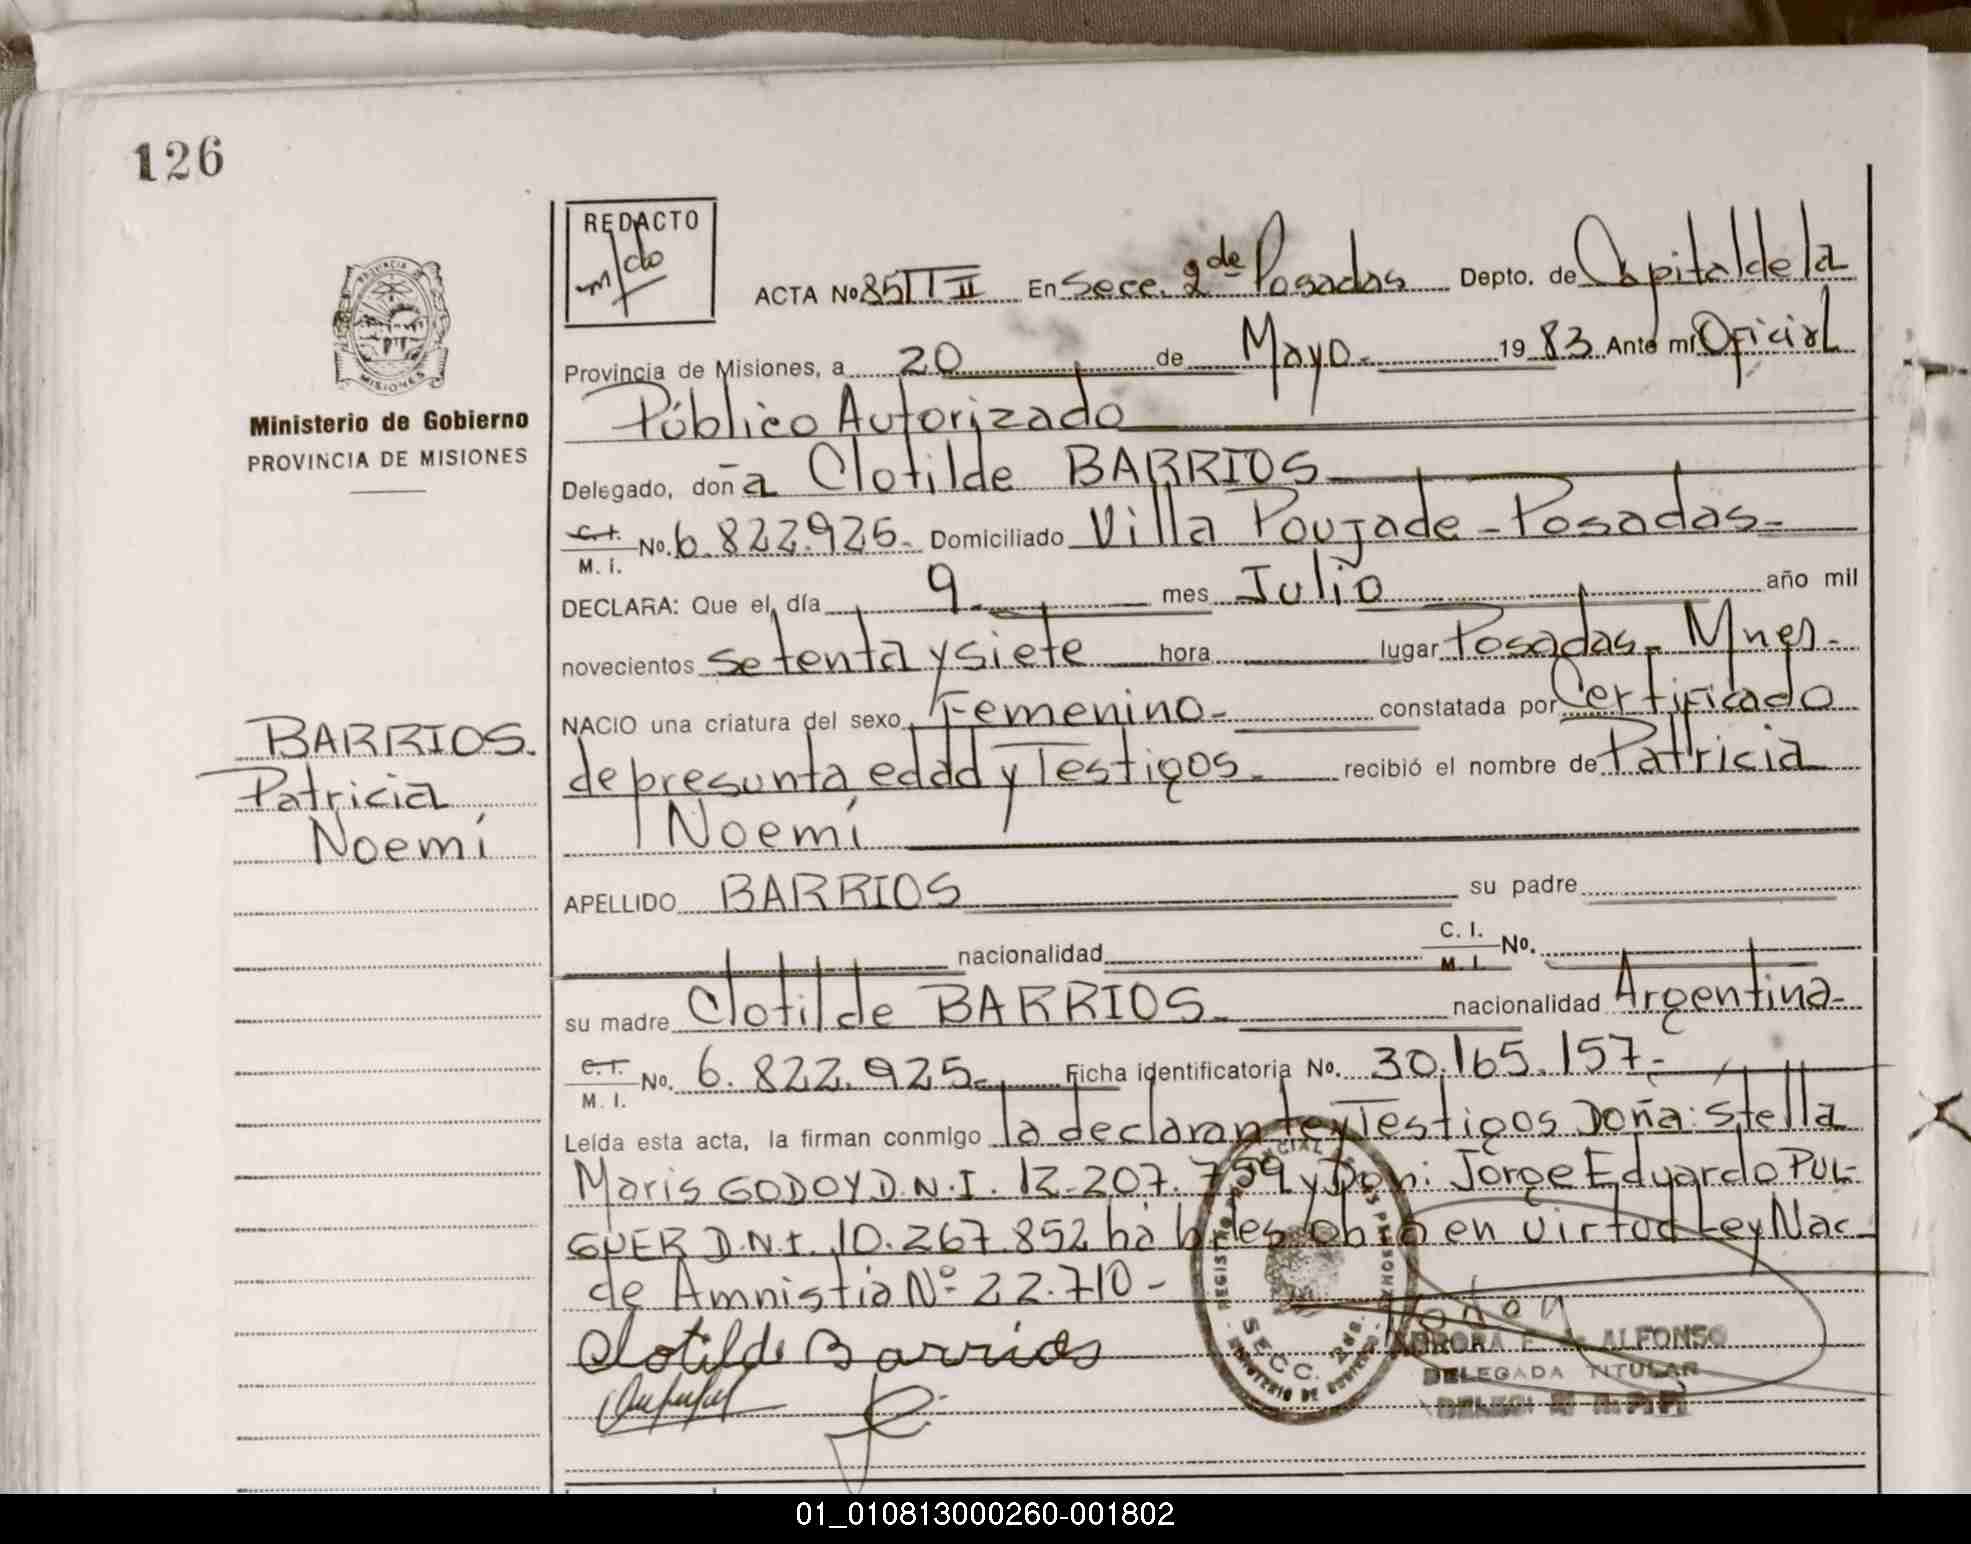 126
REDACTO
ACTA No 85 T II En Secc. 2da Posadas Depto. de Capital de la
Provincia de Misiones, a 20 de Mayo- 19 83 Ante mí Oficial
Público Autorizado
Ministerio de Gobierno
PROVINCIA DE MISIONES
Delegado, doña Clotilde BARRIOS
C.I. M. I. No. 6.822.925- Domiciliado Villa Poujade - Posadas-
DECLARA: Que el día 9- mes Julio año mil
novecientos setenta y siete hora lugar Posadas- Mnes-
NACIO una criatura del sexo Femenino- constatada por Certificado
de presunta edad y Testigos- recibió el nombre de Patricia
Noemí
BARRIOS.
Patricia
Noemí
APELLIDO BARRIOS su padre
nacionalidad C. I. M. I. No.
su madre Clotilde BARRIOS- nacionalidad Argentina-
C.I. M. I. No. 6.822.925- Ficha identificatoria No. 30.165.157-
Leída esta acta, la firman conmigo la declarante y Testigos Doña: Stella
Maris GODOY D.N.I. 12.207.759 y Don: Jorge Eduardo PUL-
GUER D.N.I. 10.267.852 hábiles obra en virtud Ley Nac-
de Amnistia Nº 22.710-
Clotilde Barrios
SECC. 2da.
ALFONSO
DELEGADA TITULAR
01_010813000260-001802